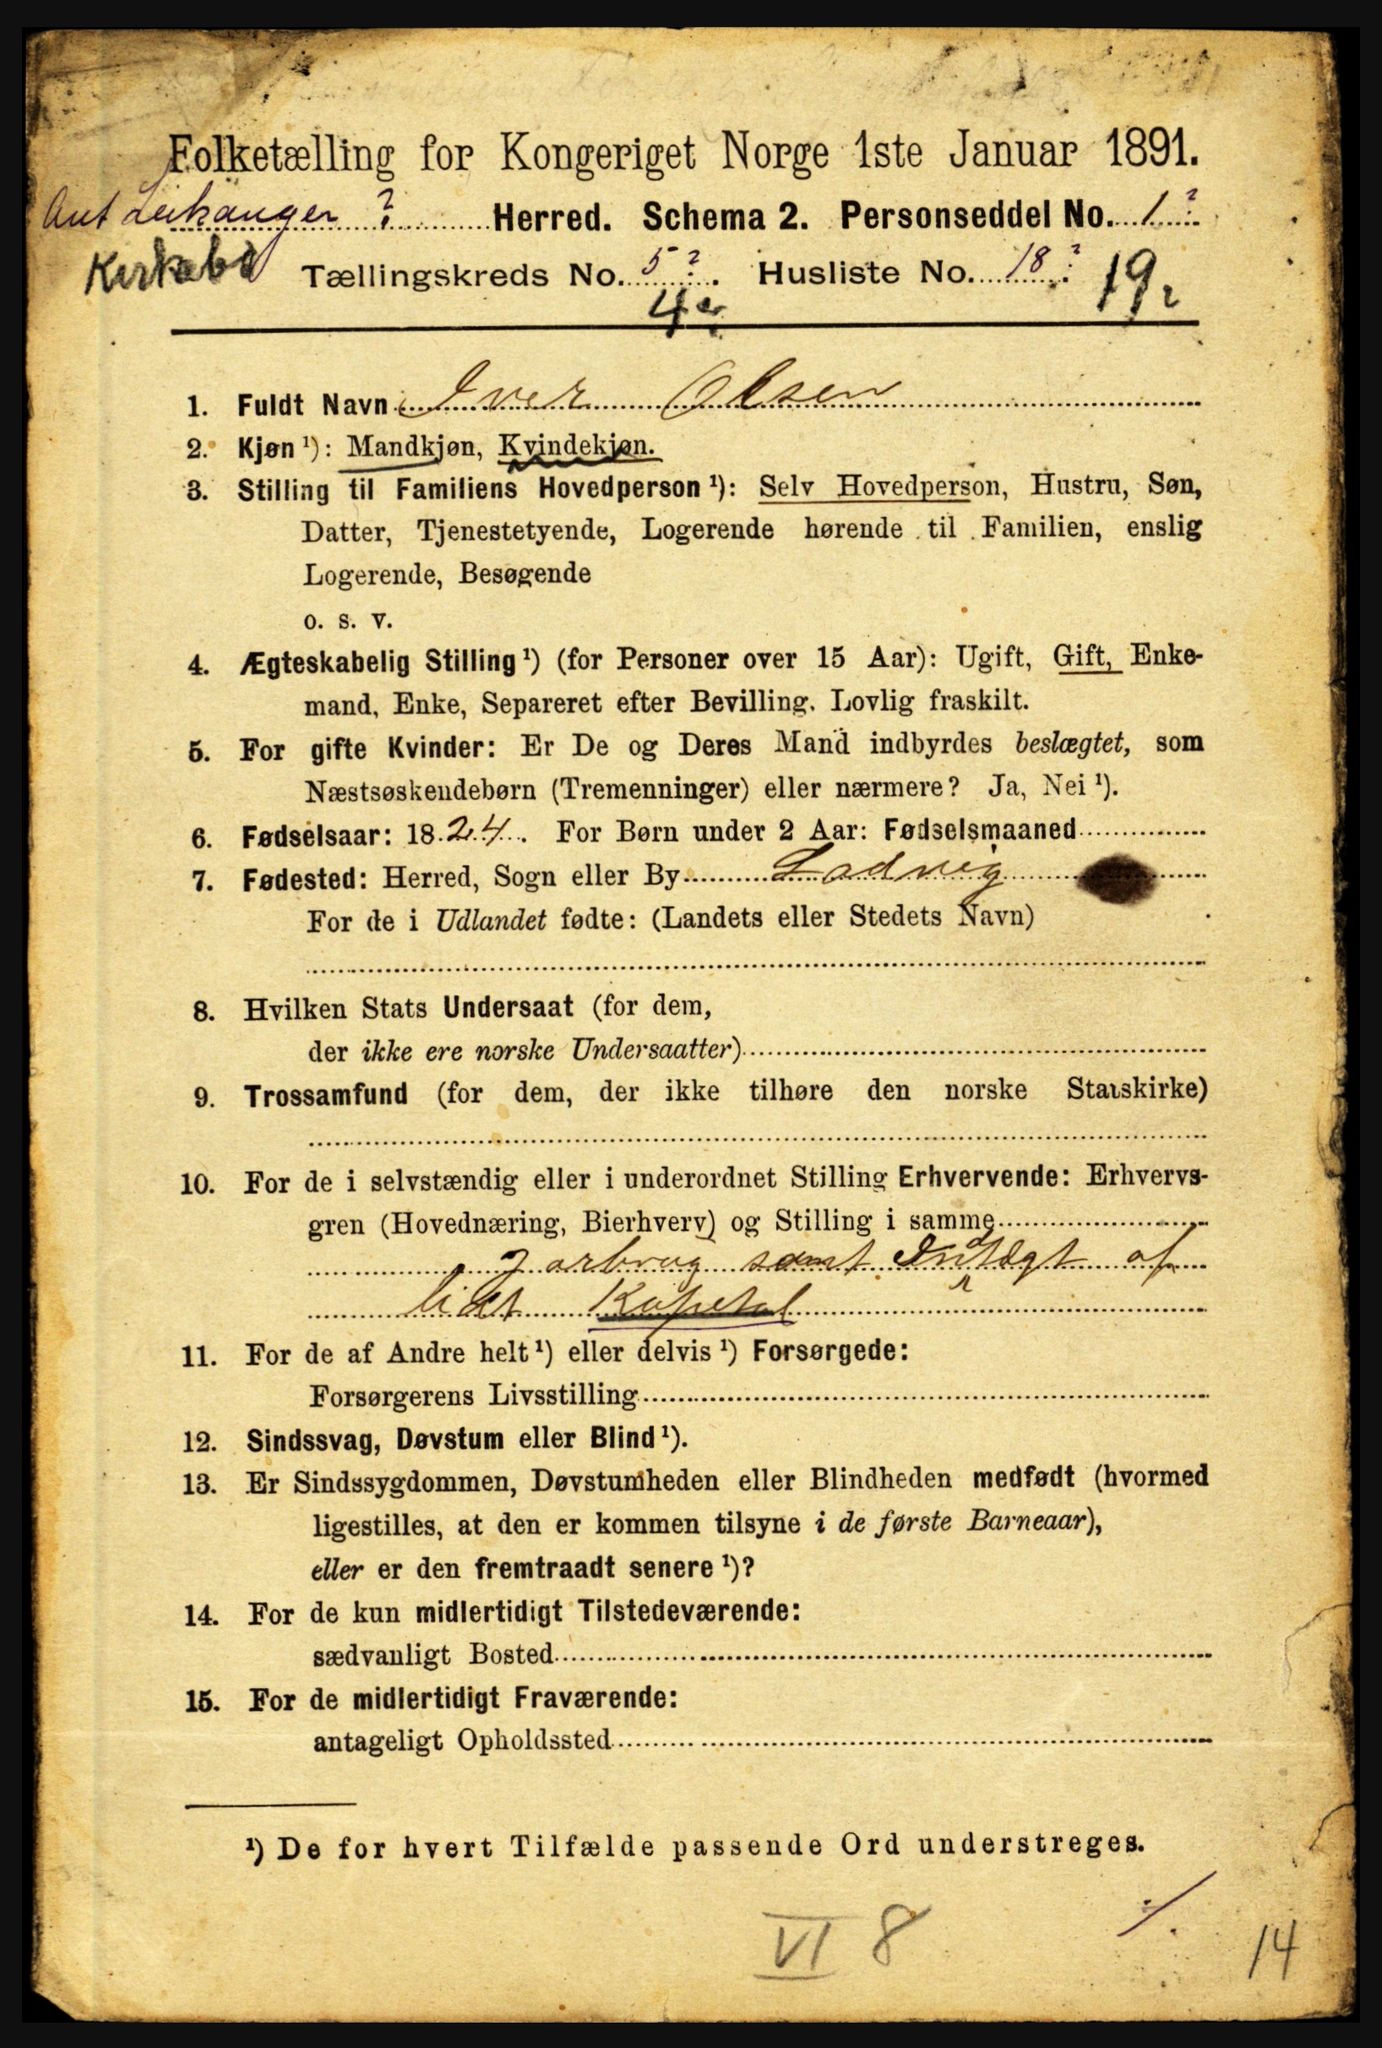 Folketælling for Kongeriget Norge 1ste Januar 1891.
Ant Leikanger ? Herred. Schema 2. Personseddel No. 1 ?
Kirkebø Tællingskreds No. 5 ? . Husliste No. 18 ? 19
4
1. Fuldt Navn Iver Olsen
2. Kjøn ¹): Mandkjøn, Kvindekjøn.
3. Stilling til Familiens Hovedperson ¹): Selv Hovedperson, Hustru, Søn,
Datter, Tjenestetyende, Logerende hørende til Familien, enslig
Logerende, Besøgende
o. s. v.
4. Ægteskabelig Stilling ¹) (for Personer over 15 Aar): Ugift, Gift, Enke-
mand, Enke, Separeret efter Bevilling. Lovlig fraskilt.
5. For gifte Kvinder: Er De og Deres Mand indbyrdes beslægtet, som
Næstsøskendebørn (Tremenninger) eller nærmere? Ja, Nei ¹).
6. Fødselsaar: 1824. For Børn under 2 Aar: Fødselsmaaned
7. Fødested: Herred, Sogn eller By Ladvig
For de i Udlandet fødte: (Landets eller Stedets Navn)
8. Hvilken Stats Undersaat (for dem,
der ikke ere norske Undersaatter)
9. Trossamfund (for dem, der ikke tilhøre den norske Statskirke)
10. For de i selvstændig eller i underordnet Stilling Erhvervende: Erhvervs-
gren (Hovednæring, Bierhverv) og Stilling i samme
Jorbrug samt Indtægt af
lidt Kapetal
11. For de af Andre helt ¹) eller delvis ¹) Forsørgede:
Forsørgerens Livsstilling
12. Sindssvag, Døvstum eller Blind ¹).
13. Er Sindssygdommen, Døvstumheden eller Blindheden medfødt (hvormed
ligestilles, at den er kommen tilsyne i de første Barneaar),
eller er den fremtraadt senere ¹)?
14. For de kun midlertidigt Tilstedeværende:
sædvanligt Bosted
15. For de midlertidigt Fraværende:
antageligt Opholdssted
¹) De for hvert Tilfælde passende Ord understreges.
VI 8
14